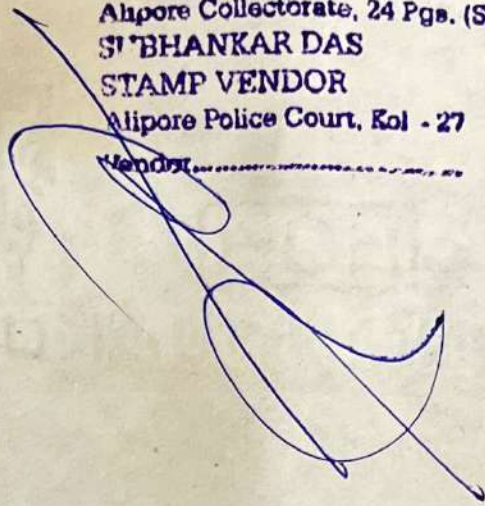 Alipore Collectorate, 24 Pgs. (S
SUBHANKAR DAS
STAMP VENDOR
Alipore Police Court, Kol - 27
Vendor